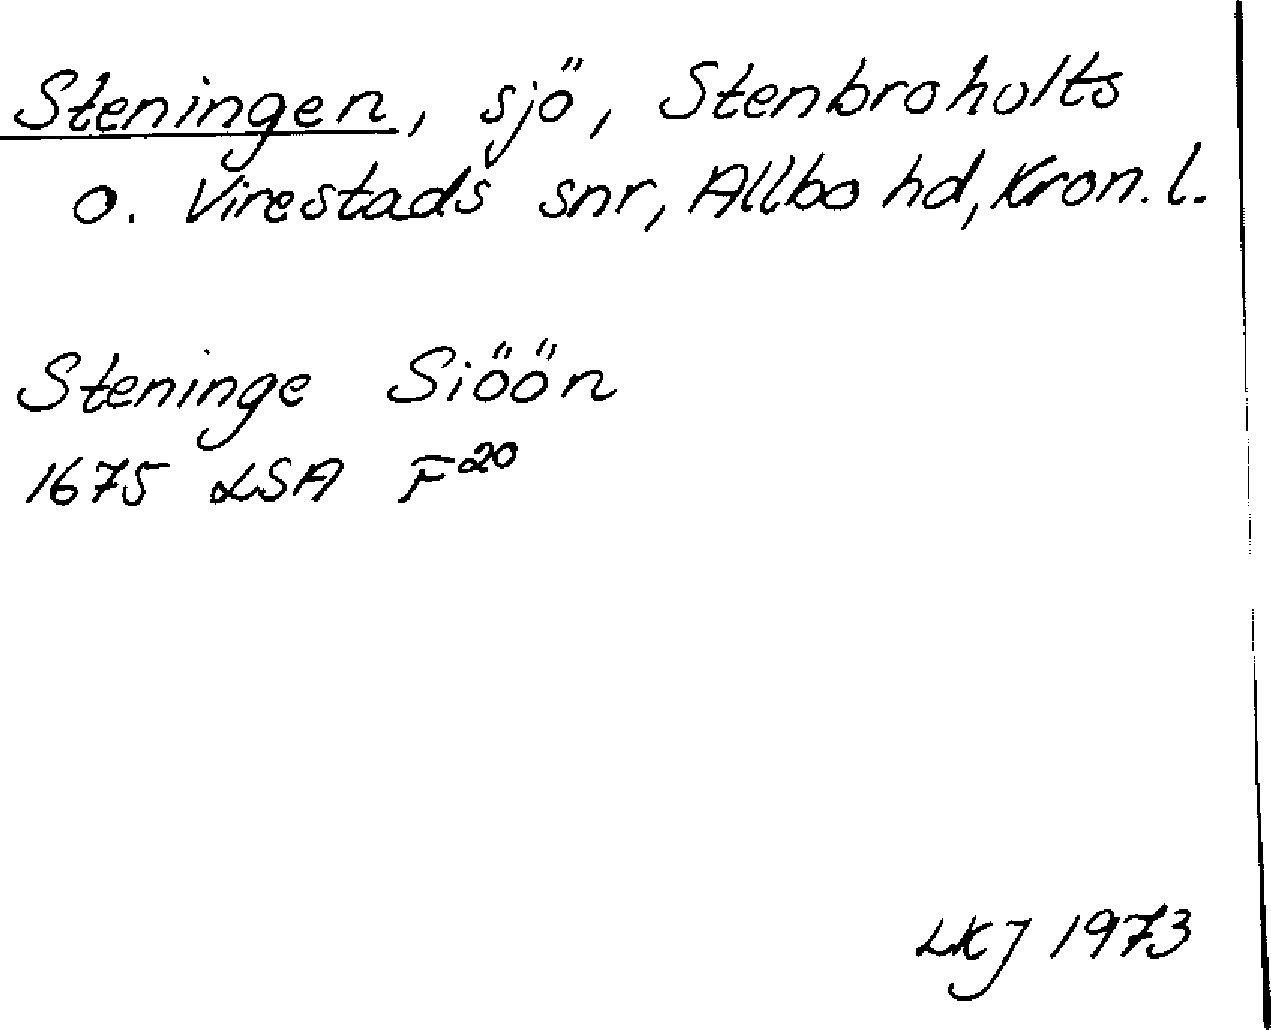 Steningen, sjö, Stenbroholts
o. Virestads snr, Allbo hd, Kron. l.
Steninge Siöön
1675 LSA F20
LKJ 1973